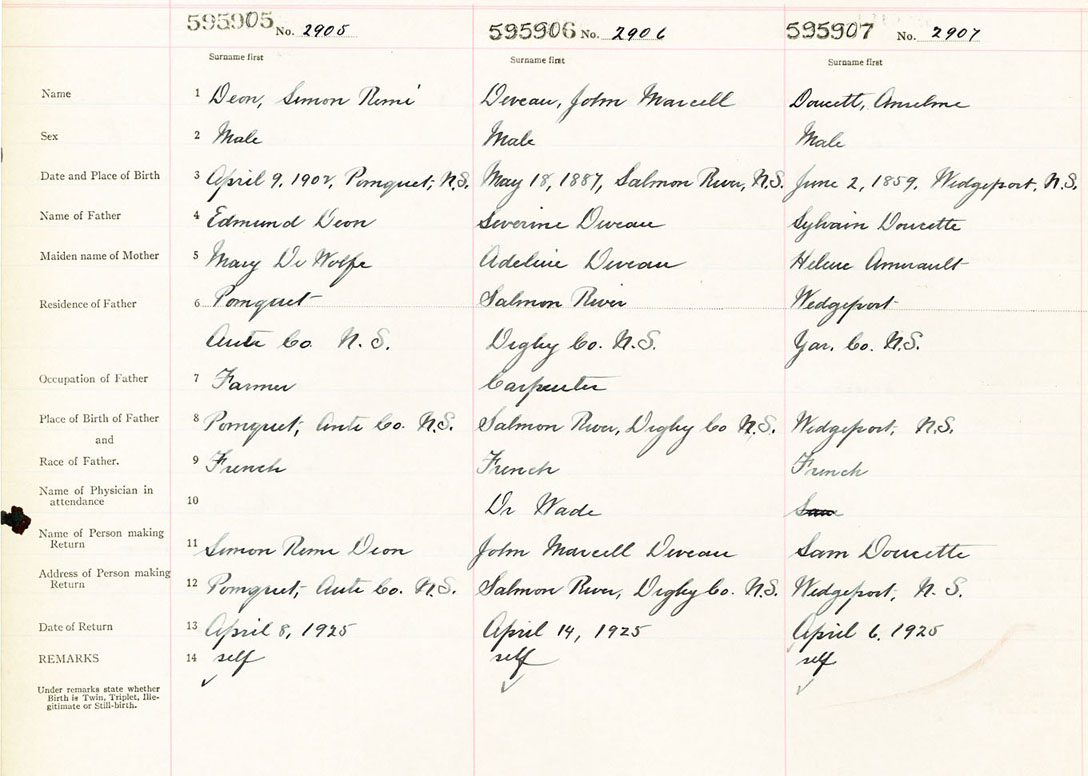 595905 No. 2905 595906 No. 2906 595907 No. 2907
Surname first Surname first Surname first
Name 1 Deon, Simon Remi Deveau, John Marcell Doucett, Anselme
Sex 2 Male Male Male
Date and Place of Birth 3 April 9, 1902, Pomquet, N.S. May 18, 1887, Salmon River, N.S. June 2, 1859, Wedgeport, N.S.
Name of Father 4 Edmund Deon Severine Deveau Sylvain Doucette
Maiden name of Mother 5 Mary De Wolfe Adeline Deveau Helene Amirault
Residence of Father 6 Pomquet Salmon River Wedgeport
Anti Co N.S. Digby Co. N.S. Yar. Co. N.S.
Occupation of Father 7 Farmer Carpenter
Place of Birth of Father 8 Pomquet, Anti Co. N.S. Salmon River, Digby Co N.S. Wedgeport, N.S.
and
Race of Father. 9 French French French
Name of Physician in 10 Dr Wade Sam
attendance
Name of Person making 11 Simon Remi Deon John Marcell Deveau Sam Doucette
Return
Address of Person making 12 Pomquet, Anti Co. N.S. Salmon River, Digby Co. N.S. Wedgeport, N.S.
Return
Date of Return 13 April 8, 1925 April 14, 1925 April 6, 1925
REMARKS 14 self self self
Under remarks state whether
Birth is Twin, Triplet, Ille-
gitimate or Still-birth.